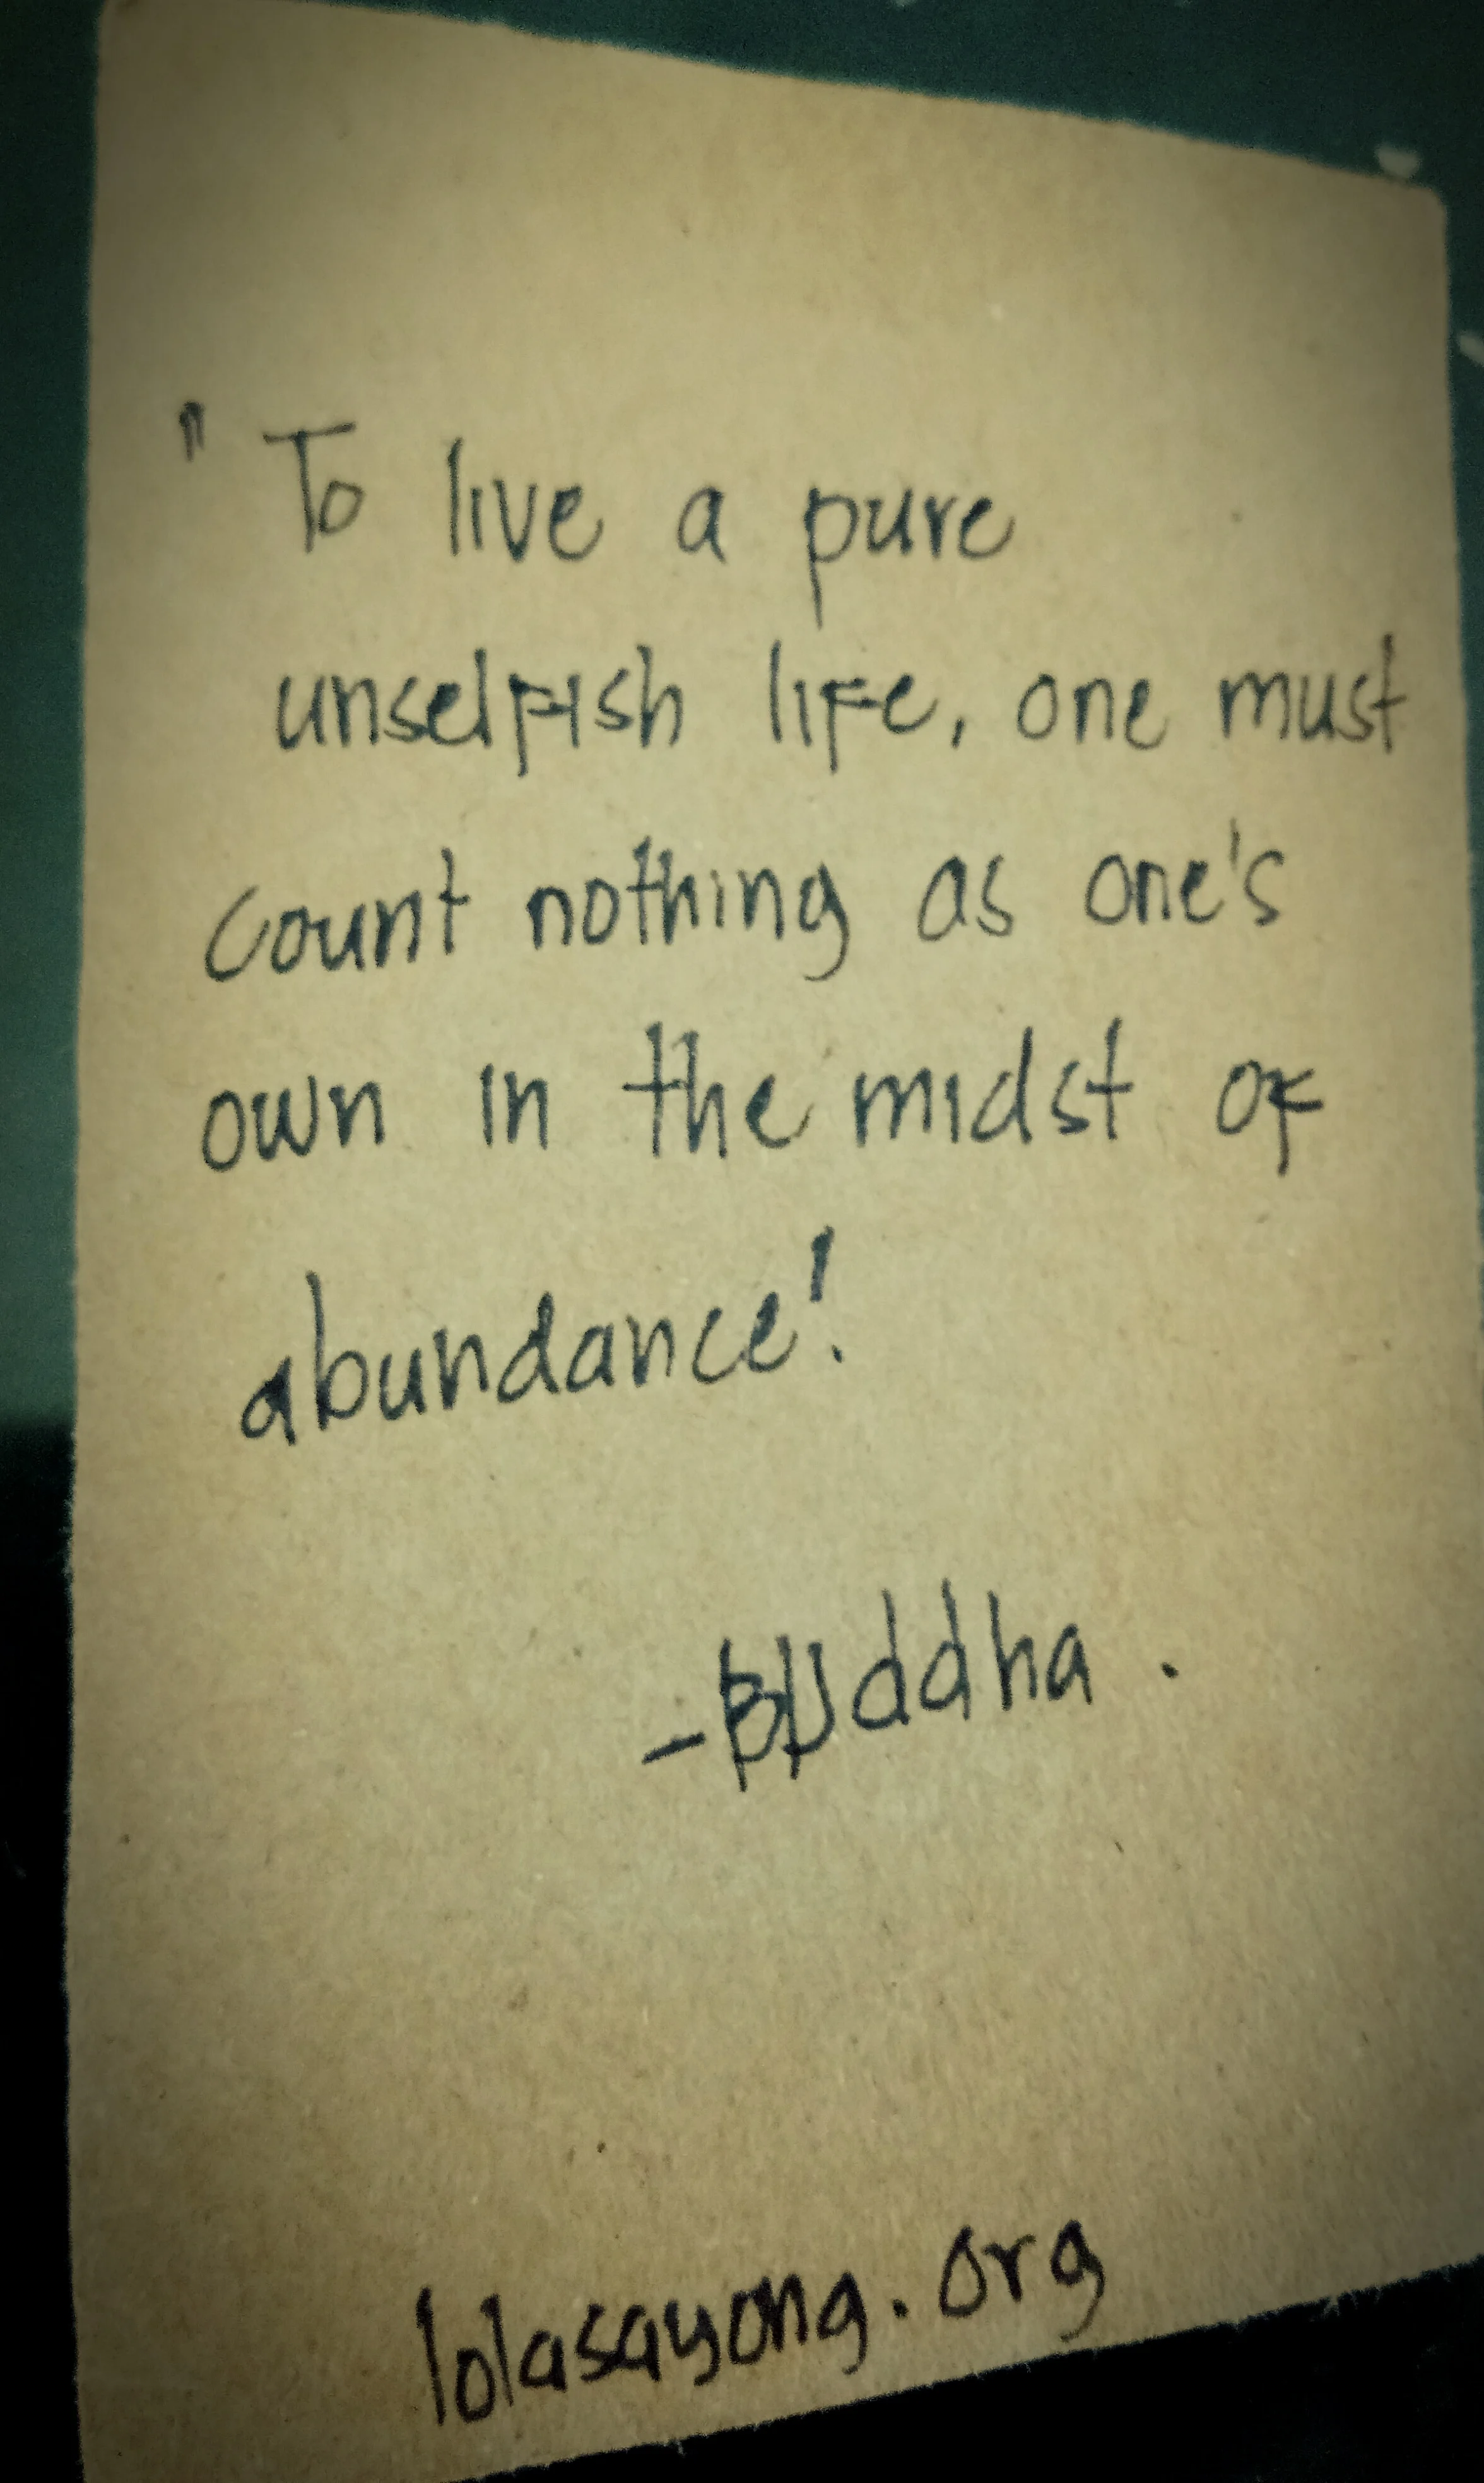 " To live a pure
unselfish life, one must
count nothing as one's
own in the midst of
abundance!
-Buddha.
lolasayong.org